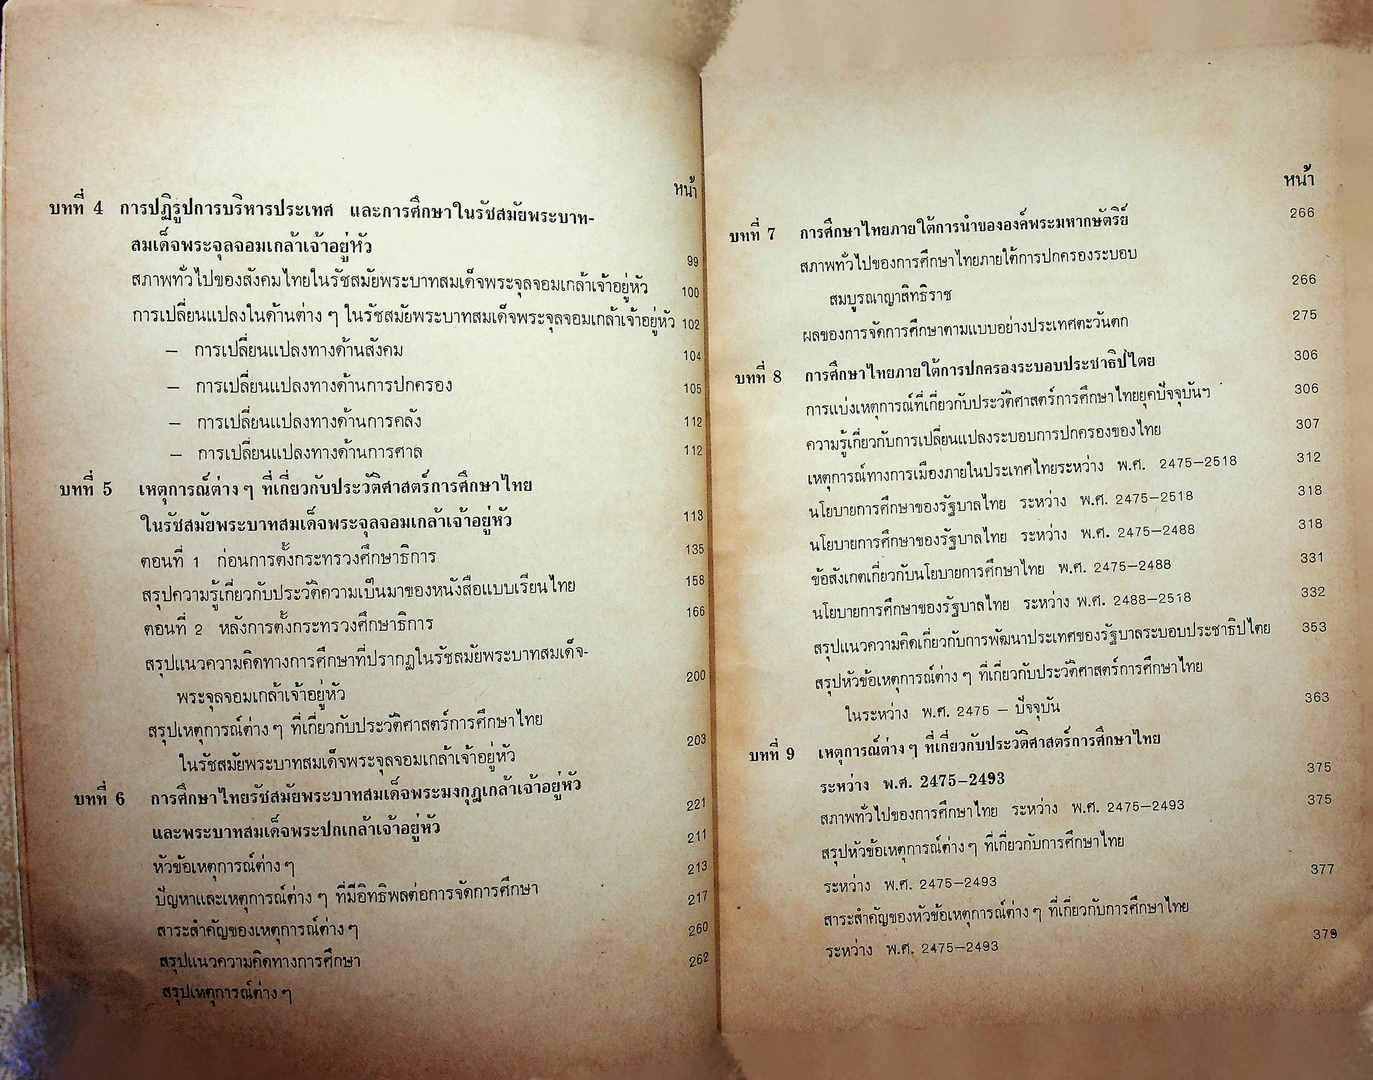 หน้า
บทที่ 4 การปฏิรูปการบริหารประเทศ และการศึกษาในรัชสมัยพระบาท-
สมเด็จพระจุลจอมเกล้าเจ้าอยู่หัว 99
สภาพทั่วไปของสังคมไทยในรัชสมัยพระบาทสมเด็จพระจุลจอมเกล้าเจ้าอยู่หัว 100
การเปลี่ยนแปลงในด้านต่าง ๆ ในรัชสมัยพระบาทสมเด็จพระจุลจอมเกล้าเจ้าอยู่หัว 102
– การเปลี่ยนแปลงทางด้านสังคม 104
– การเปลี่ยนแปลงทางด้านการปกครอง 105
– การเปลี่ยนแปลงทางด้านการคลัง 112
– การเปลี่ยนแปลงทางด้านการศาล 112
บทที่ 5 เหตุการณ์ต่าง ๆ ที่เกี่ยวกับประวัติศาสตร์การศึกษาไทย
ในรัชสมัยพระบาทสมเด็จพระจุลจอมเกล้าเจ้าอยู่หัว 113
ตอนที่ 1 ก่อนการตั้งกระทรวงศึกษาธิการ 135
สรุปความรู้เกี่ยวกับประวัติความเป็นมาของหนังสือแบบเรียนไทย 158
ตอนที่ 2 หลังการตั้งกระทรวงศึกษาธิการ 166
สรุปแนวความคิดทางการศึกษาที่ปรากฏในรัชสมัยพระบาทสมเด็จ-
พระจุลจอมเกล้าเจ้าอยู่หัว 200
สรุปเหตุการณ์ต่าง ๆ ที่เกี่ยวกับประวัติศาสตร์การศึกษาไทย
ในรัชสมัยพระบาทสมเด็จพระจุลจอมเกล้าเจ้าอยู่หัว 203
บทที่ 6 การศึกษาไทยรัชสมัยพระบาทสมเด็จพระมงกุฎเกล้าเจ้าอยู่หัว
และพระบาทสมเด็จพระปกเกล้าเจ้าอยู่หัว 221
หัวข้อเหตุการณ์ต่าง ๆ 211
ปัญหาและเหตุการณ์ต่าง ๆ ที่มีอิทธิพลต่อการจัดการศึกษา 213
สาระสำคัญของเหตุการณ์ต่าง ๆ 217
สรุปแนวความคิดทางการศึกษา 260
สรุปเหตุการณ์ต่าง ๆ 262
หน้า
บทที่ 7 การศึกษาไทยภายใต้การนำขององค์พระมหากษัตริย์ 266
สภาพทั่วไปของการศึกษาไทยภายใต้การปกครองระบอบ
สมบูรณาญาสิทธิราช 266
ผลของการจัดการศึกษาตามแบบอย่างประเทศตะวันตก 275
บทที่ 8 การศึกษาไทยภายใต้การปกครองระบอบประชาธิปไตย 306
การแบ่งเหตุการณ์ที่เกี่ยวกับประวัติศาสตร์การศึกษาไทยยุคปัจจุบันฯ 306
ความรู้เกี่ยวกับการเปลี่ยนแปลงระบอบการปกครองของไทย 307
เหตุการณ์ทางการเมืองภายในประเทศไทยระหว่าง พ.ศ. 2475–2518 312
นโยบายการศึกษาของรัฐบาลไทย ระหว่าง พ.ศ. 2475–2518 318
นโยบายการศึกษาของรัฐบาลไทย ระหว่าง พ.ศ. 2475–2488 318
ข้อสังเกตเกี่ยวกับนโยบายการศึกษาไทย พ.ศ. 2475–2488 331
นโยบายการศึกษาของรัฐบาลไทย ระหว่าง พ.ศ. 2488–2518 332
สรุปแนวความคิดเกี่ยวกับการพัฒนาประเทศของรัฐบาลระบอบประชาธิปไตย 353
สรุปหัวข้อเหตุการณ์ต่าง ๆ ที่เกี่ยวกับประวัติศาสตร์การศึกษาไทย
ในระหว่าง พ.ศ. 2475 – ปัจจุบัน 363
บทที่ 9 เหตุการณ์ต่าง ๆ ที่เกี่ยวกับประวัติศาสตร์การศึกษาไทย
ระหว่าง พ.ศ. 2475–2493 375
สภาพทั่วไปของการศึกษาไทย ระหว่าง พ.ศ. 2475–2493 375
สรุปหัวข้อเหตุการณ์ต่าง ๆ ที่เกี่ยวกับการศึกษาไทย
ระหว่าง พ.ศ. 2475–2493 377
สาระสำคัญของหัวข้อเหตุการณ์ต่าง ๆ ที่เกี่ยวกับการศึกษาไทย
ระหว่าง พ.ศ. 2475–2493 379